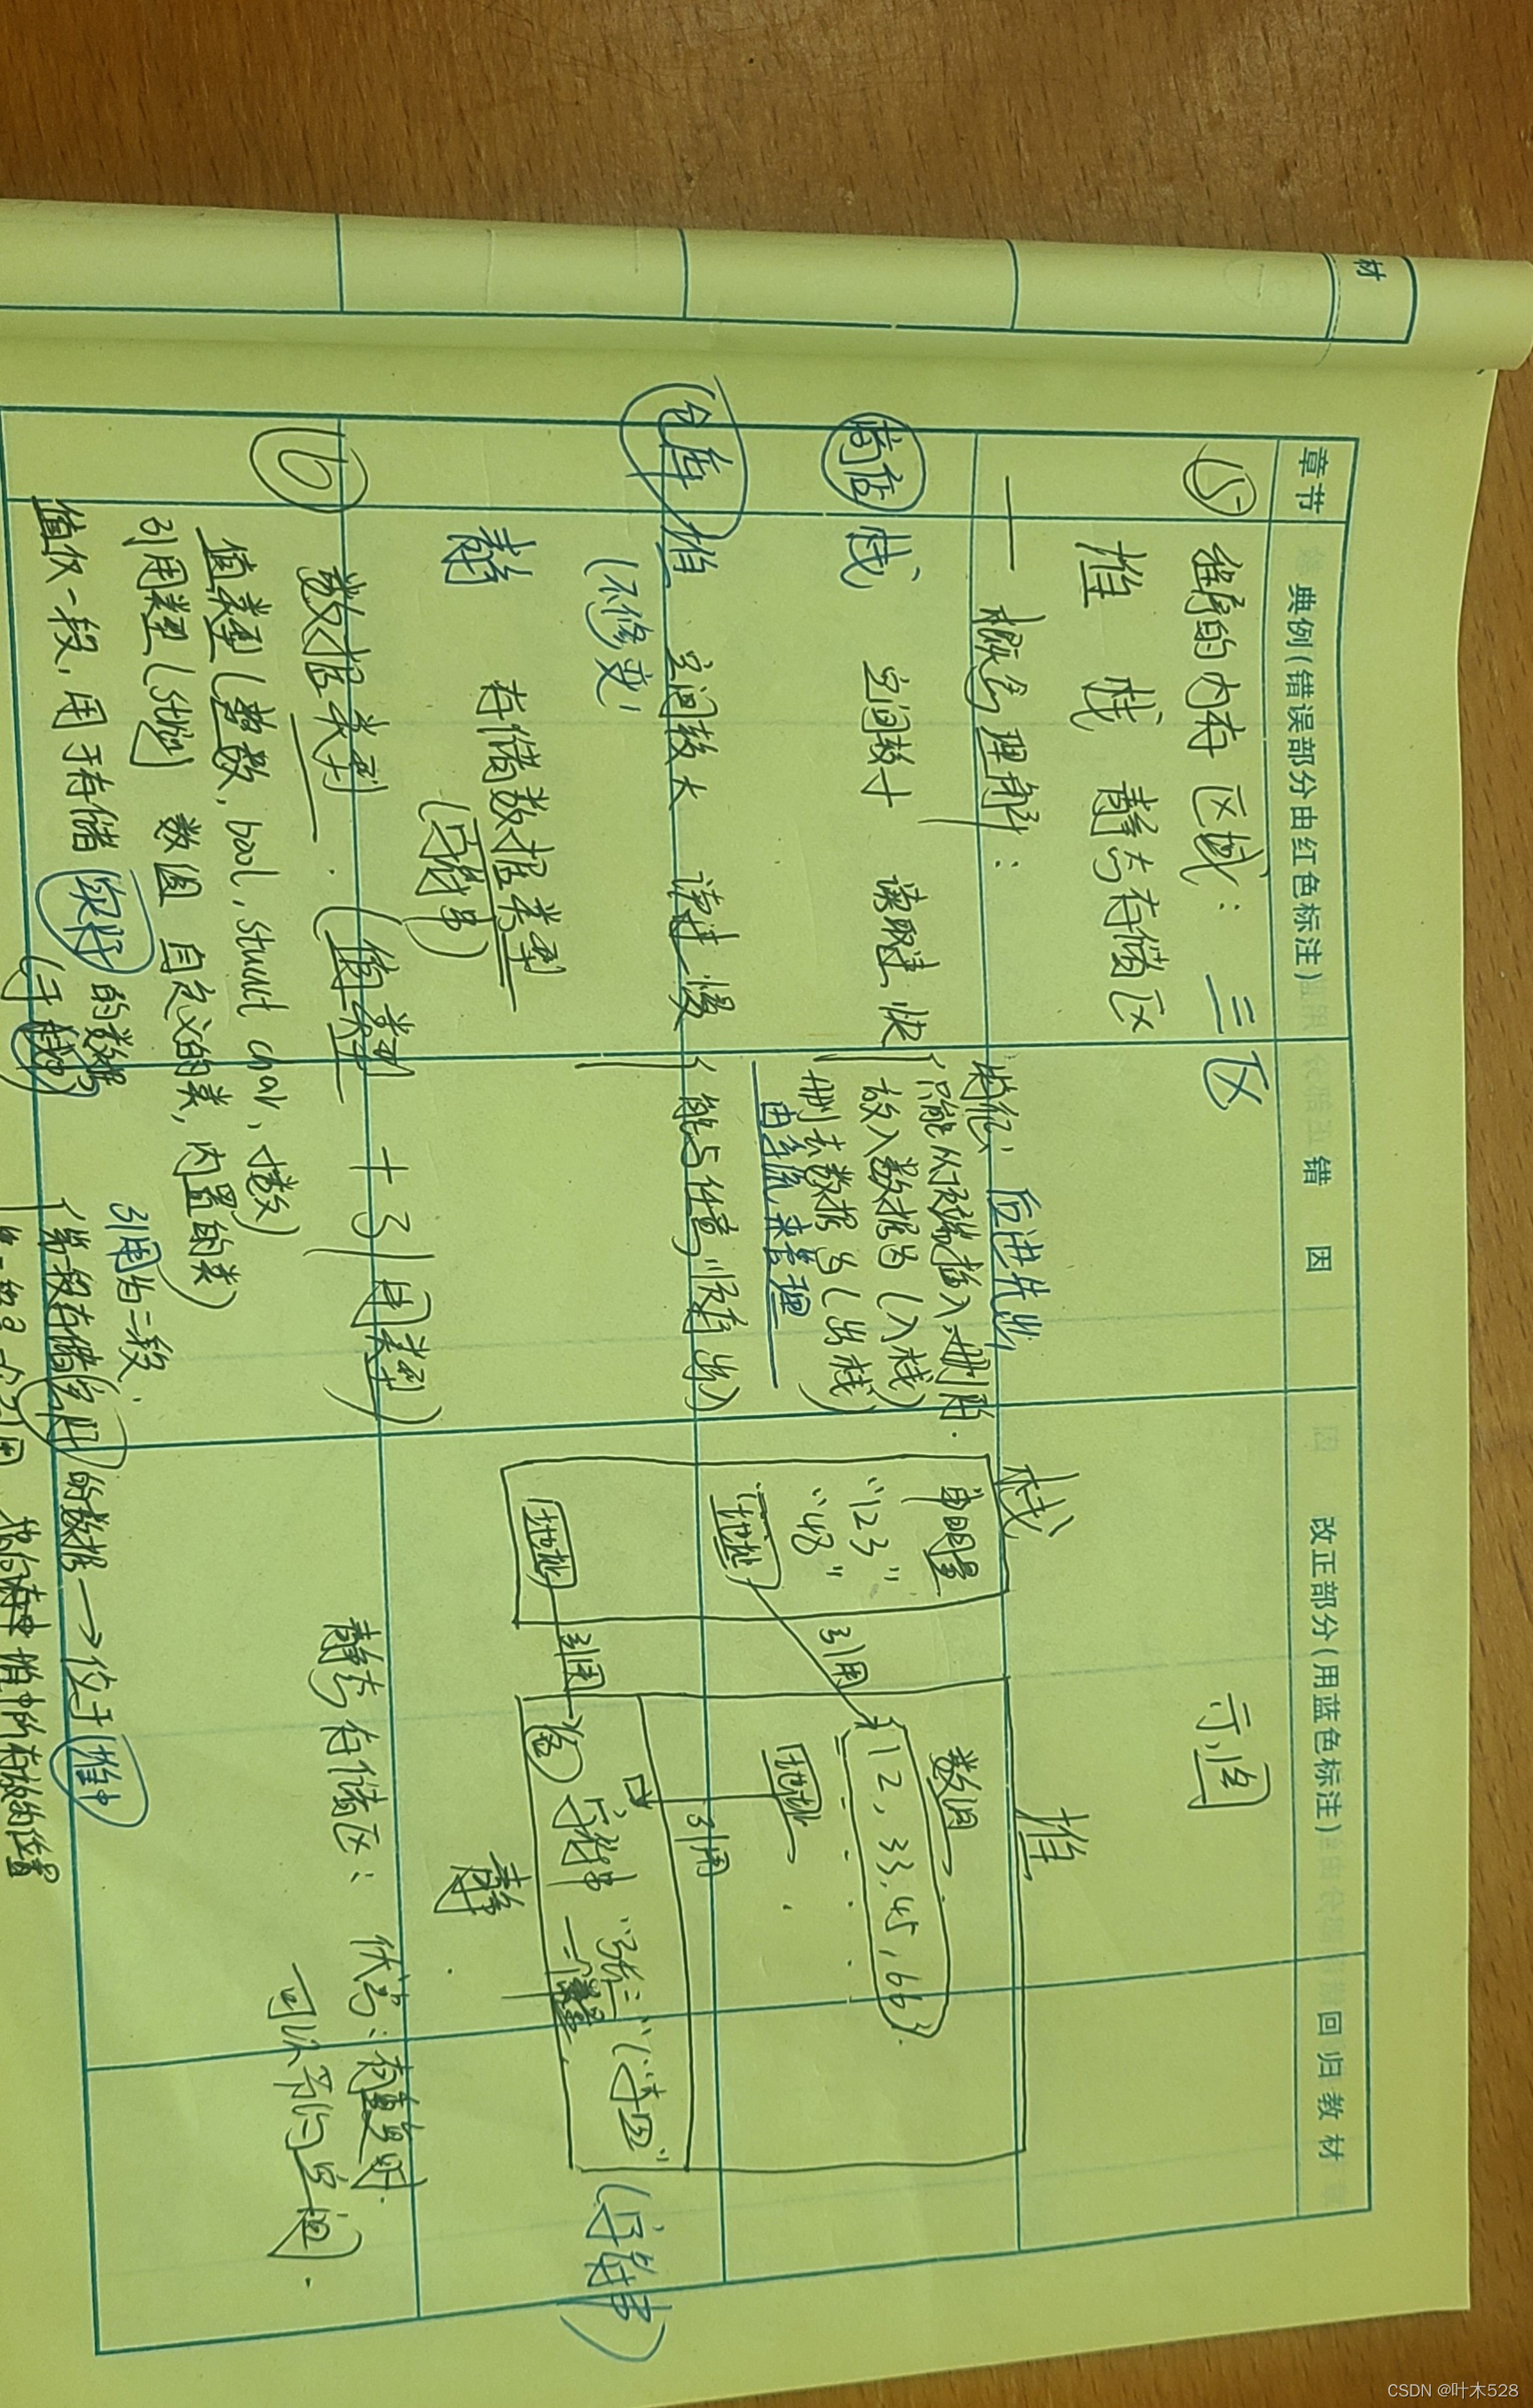 材
章节
典例(错误部分由红色标注)
错 因
改正部分(用蓝色标注)
回归教材
⑤ 程序的内存区域: 三区
示图
堆 栈 静态存储区
一 概念理解:
特征: 后进先出
只能从顶端插入,删除.
商店 栈 空间较小 读取速快
放入数据为(入栈)
删去数据为(出栈)
由系统来管理
仓库 堆 空间较大 读速慢
(能与任意顺序存入)
静 存储数据类型
(字符串)
栈
堆
申明量
“123”
“48”
地址
引用
数组
12,33,45,66
地址
引用
地址
引用
值
字符串 “张三” “李四”
(字符串)
静
静态存储区: 优势: 有重复时.
可以节约空间.
⑥ 数据类型 (值类型 + 引用类型)
值类型(整数, bool, struct char, 小数)
引用类型(string 数组 自定义的类, 内置的类)
值仅一段, 用于存储实际的数据
(于栈中)
引用为二段
第一段存储实际的数据 → 位于堆中
CSDN @叶木528